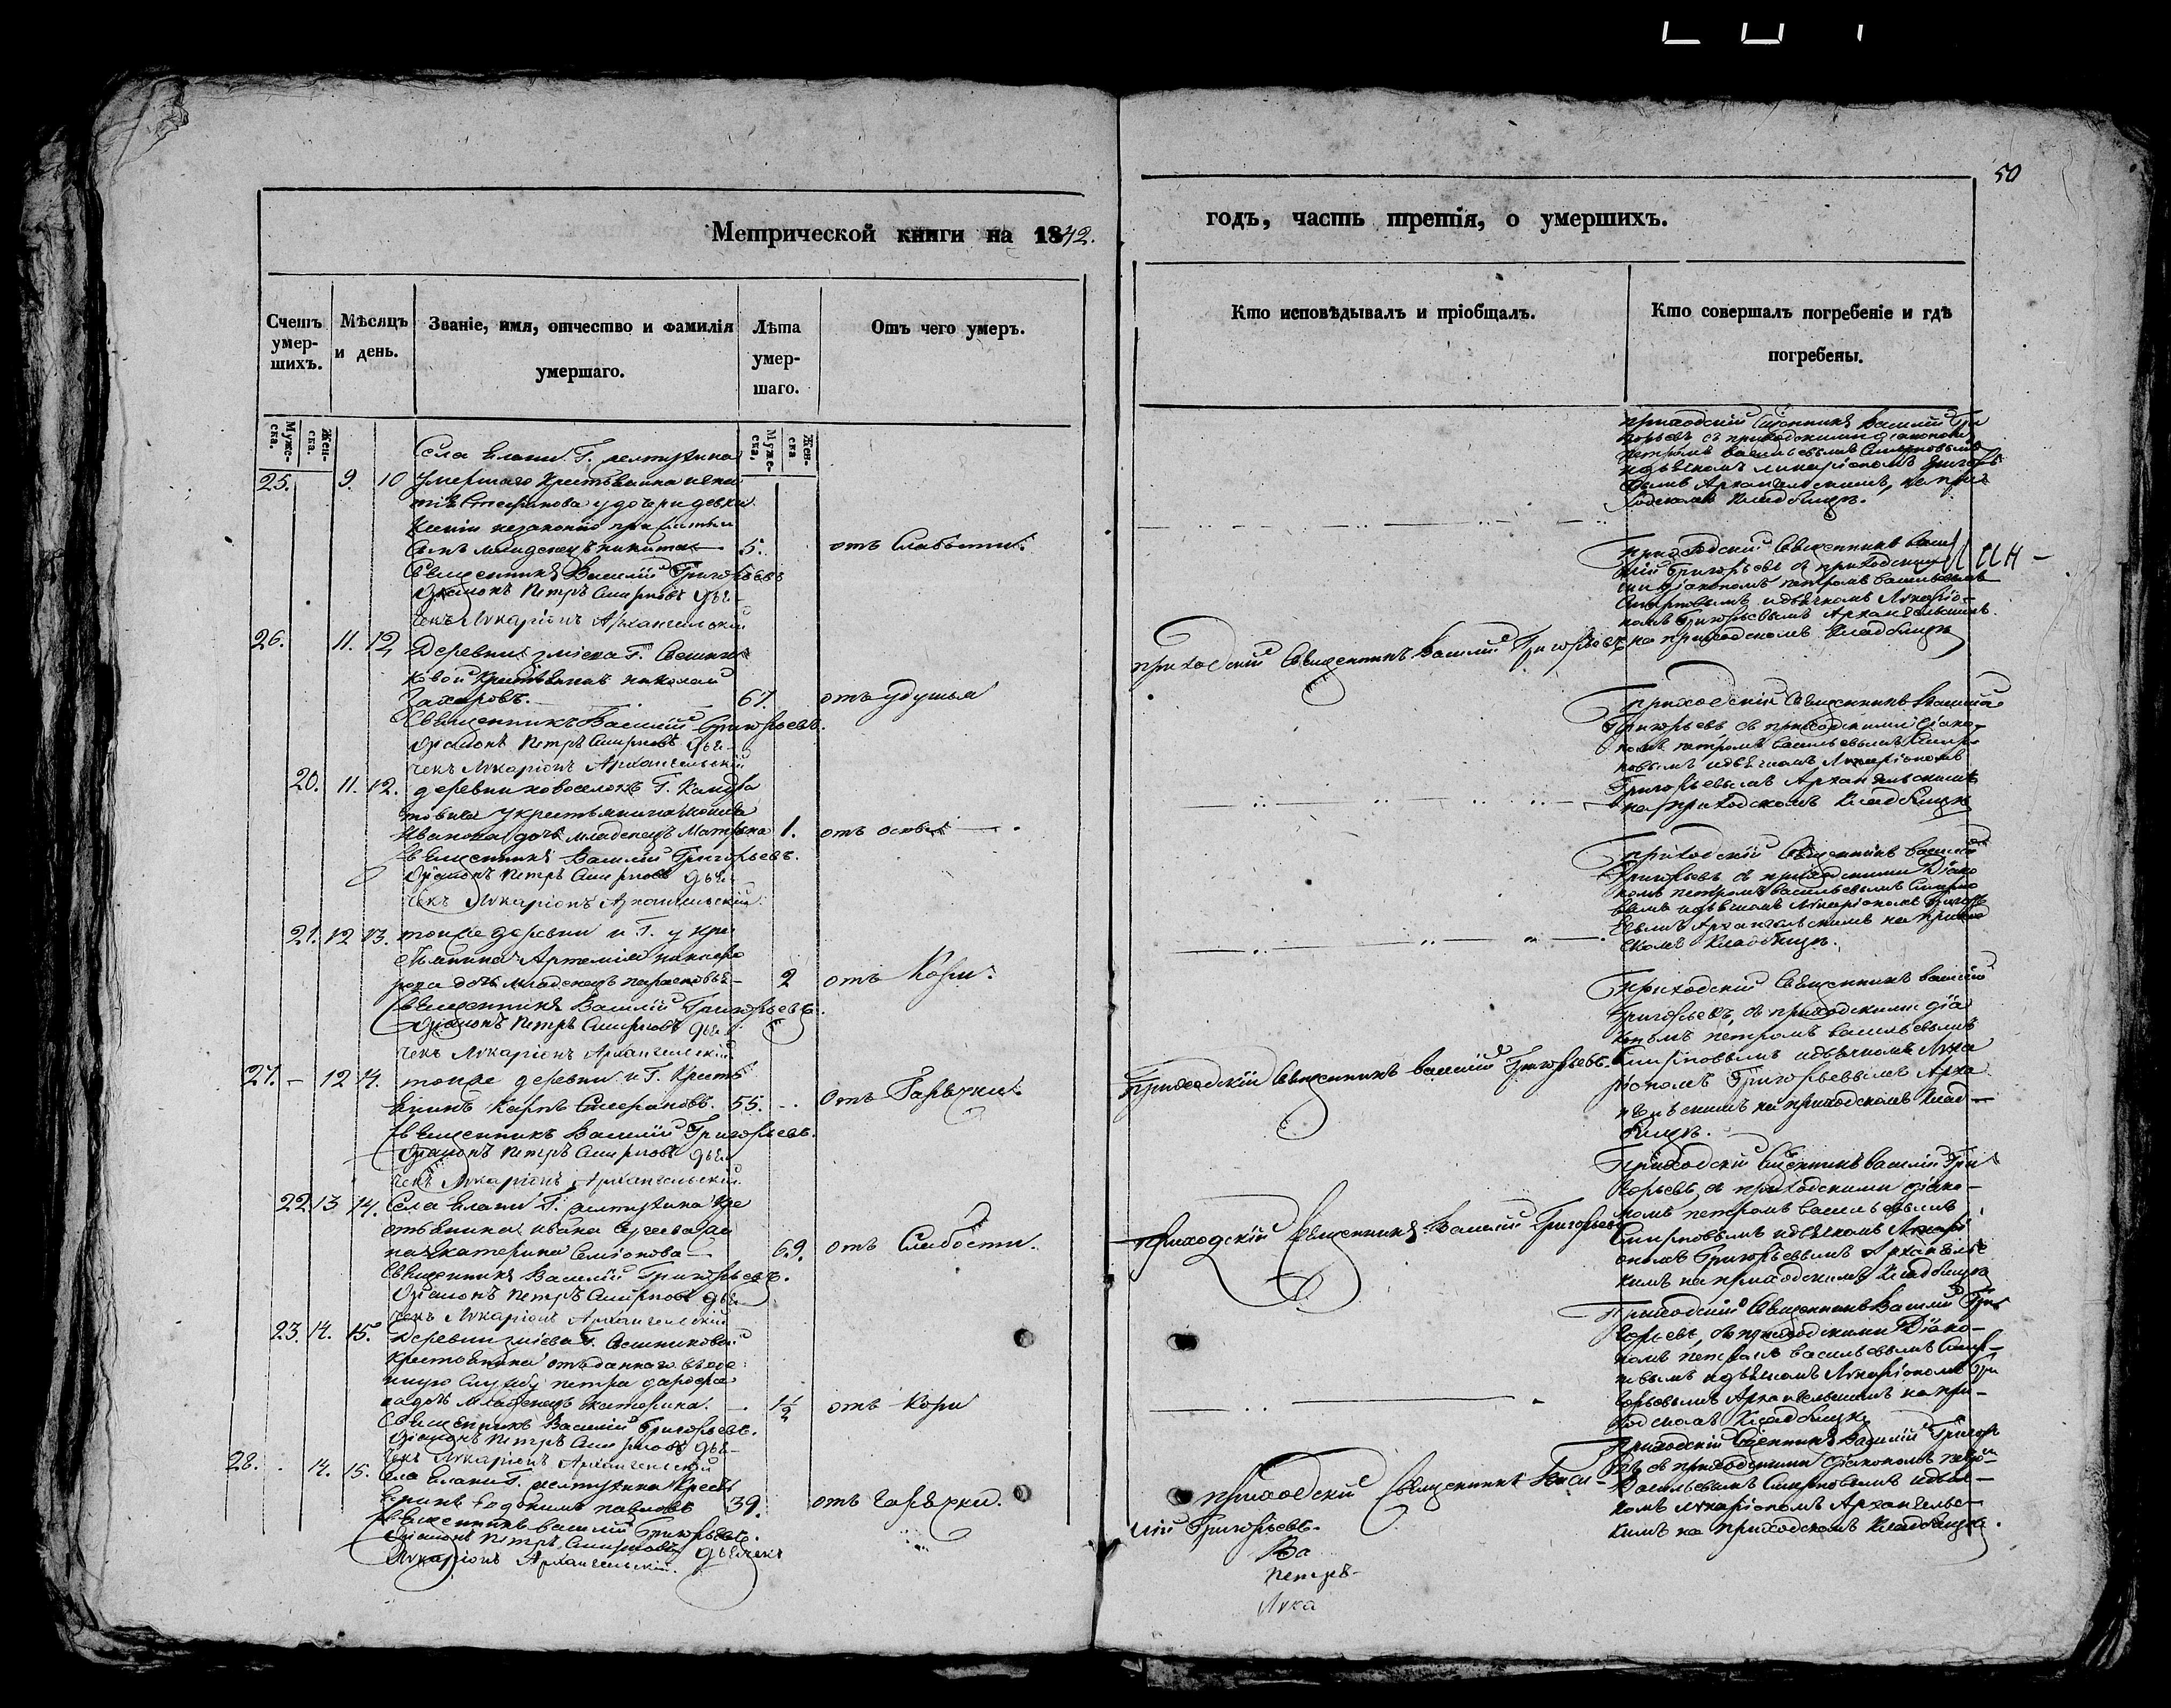 50
Метрической книги на 1842.
годъ, часть третія, о умершихъ.
Счетъ умер-шихъ.
Мѣсяцъ и день.
Званіе, имя, отчество и фамилія умершаго.
Лѣта умер-шаго.
Отъ чего умеръ.
Кто исповѣдывалъ и пріобщалъ.
Кто совершалъ погребеніе и гдѣ погребены.
Муже-ска.
Жен-ска.
Муже-ска.
Жен-ска
Села Елани Г.
25. 9. 10 умершаго крестьянина
Стефанова у дочери девки
незаконно прижитый
сынъ младенецъ Никита 5. отъ Слабости.
Священникъ Василій Григорьевъ
Діаконъ Петръ Смирновъ дья-
чекъ Лукаріонъ Архангельскій
приходскій Священникъ Василій Гри
горьевъ съ приходскими діакономъ
Петромъ Васильевымъ Смирновымъ
идьячкомъ Лукаріономъ Григорь
евымъ Архангельскимъ, на при
ходскомъ Кладбищѣ.
26. 11. 12 Деревни Зміева Г. Свешни
ковой крестьянинъ Николай
Захаровъ. 67. отъ удушья
Священникъ Василій Григорьевъ.
Діаконъ Петръ Смирновъ дья-
чекъ Лукаріонъ Архангельскій
приходскій Священникъ Василій Григорьевъ
приходскій Священникъ Васи
лій Григорьевъ съ приходски
ми діакономъ Петромъ Васильевымъ
Смирновымъ идьячкомъ Лукаріо-
номъ Григорьевымъ Архангельскимъ.
на приходскомъ Кладбищѣ
20. 11. 12. деревни Новоселокъ Г.
у крестьянина
Иванова дочь младенецъ Матрона 1. отъ оспы
Священникъ Василій Григорьевъ.
Діаконъ Петръ Смирновъ дья-
чекъ Лукаріонъ Архангельскій
Приходскій Священникъ Василій
Григорьевъ съ приходскими діако-
номъ Петромъ Васильевымъ Смир-
новымъ идьячкомъ Лукаріономъ
Григорьевымъ Архангельскимъ
на приходскомъ Кладбищѣ
21. 12 13. тойже деревни и Г. у кре
стьянина Артемія Никифо
рова дочь младенецъ Парасковья 2 отъ Кори.
Священникъ Василій Григорьевъ.
Діаконъ Петръ Смирновъ дья-
чекъ Лукаріонъ Архангельскій
Приходскій Священникъ Василій
Григорьевъ съ приходскими Діако
номъ Петромъ Васильевымъ Смирно
вымъ идьячкомъ Лукаріономъ Григорь
евымъ Архангельскимъ на приход
скомъ Кладбищѣ.
27. - 12 14. тойже деревни и Г. Кресть
янинъ Карпъ Стефановъ. 55. Отъ Гарячки.
Священникъ Василій Григорьевъ.
Діаконъ Петръ Смирновъ дья-
чекъ Лукаріонъ Архангельскій
Приходскій Священникъ Василій Григорьевъ.
Приходскій Священникъ Василій
Григорьевъ, съ приходскими діа
кономъ Петромъ Васильевымъ
Смирновымъ идьячкомъ Лука
ріономъ Григорьевымъ Арха
нгельскимъ на приходскомъ Клад-
бищѣ.
22. 13 14. Села Елани Г. кре
стьянина Ивана Сергеева же
на Екатерина Семіонова 69. отъ Слабости.
Священникъ Василій Григорьевъ.
Діаконъ Петръ Смирновъ дья-
чекъ Лукаріонъ Архангельскій
приходскій Священникъ Василій Григорьевъ
Приходскій Священникъ Василій Гри
горьевъ, съ приходскими діако-
номъ Петромъ Васильевымъ
Смирновымъ идьячкомъ Лукарі
ономъ Григорьевымъ Архангельс
кимъ на приходскомъ Кладбищѣ
23. 14. 15. Деревни Зміева Г. Свешниковой
крестьянина отъданнаго въвое
нную Службу Петра Дорофеева
дочь младенецъ Катерина. 1/2 отъ Кори
Священникъ Василій Григорьевъ.
Діаконъ Петръ Смирновъ дья-
чекъ Лукаріонъ Архангельскій
Приходскій Священникъ Василій Гри
горьевъ, съ приходскими Діако-
номъ Петромъ Васильевымъ Смир-
новымъ идьячкомъ Лукаріономъ Гри
горьевымъ Архангельскимъ на при-
ходскомъ Кладбищѣ
28. 14. 15. Села Елани Г. Кресть
янинъ Евдокимъ Павловъ 39. отъ гарячки.
Священникъ Василій Григорьевъ.
Діаконъ Петръ Смирновъ дьячекъ
Лукаріонъ Архангельскій.
приходскій Священникъ Васи-
лій Григорьевъ.
Приходскій Священникъ Василій Григорь
евъ съ приходскими діакономъ Петро-
Васильевымъ Смирновымъ идьяч-
комъ Лукаріономъ Архангельс-
кимъ на приходскомъ Кладбищѣ.
Ва
Петръ-
Лука